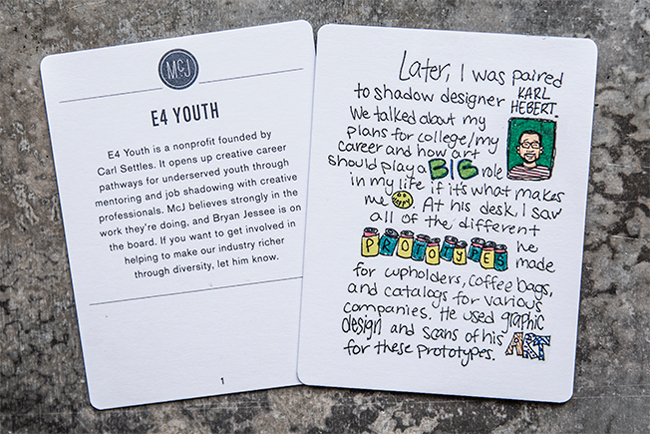 McJ
E4 YOUTH
E4 Youth is a nonprofit founded by
Carl Settles. It opens up creative career
pathways for underserved youth through
mentoring and job shadowing with creative
professionals. McJ believes strongly in the
work they're doing, and Bryan Jessee is on
the board. If you want to get involved in
helping to make our industry richer
through diversity, let him know.
1
Later, I was paired
to shadow designer KARL
HEBERT.
We talked about my
plans for college/my
career and how art
should play a BIG role
in my life if it's what makes
me happy. At his desk, I saw
all of the different
PROTOTYPES he
made
for cupholders, coffee bags,
and catalogs for various
companies. He used graphic
design and scans of his ART
for these prototypes.